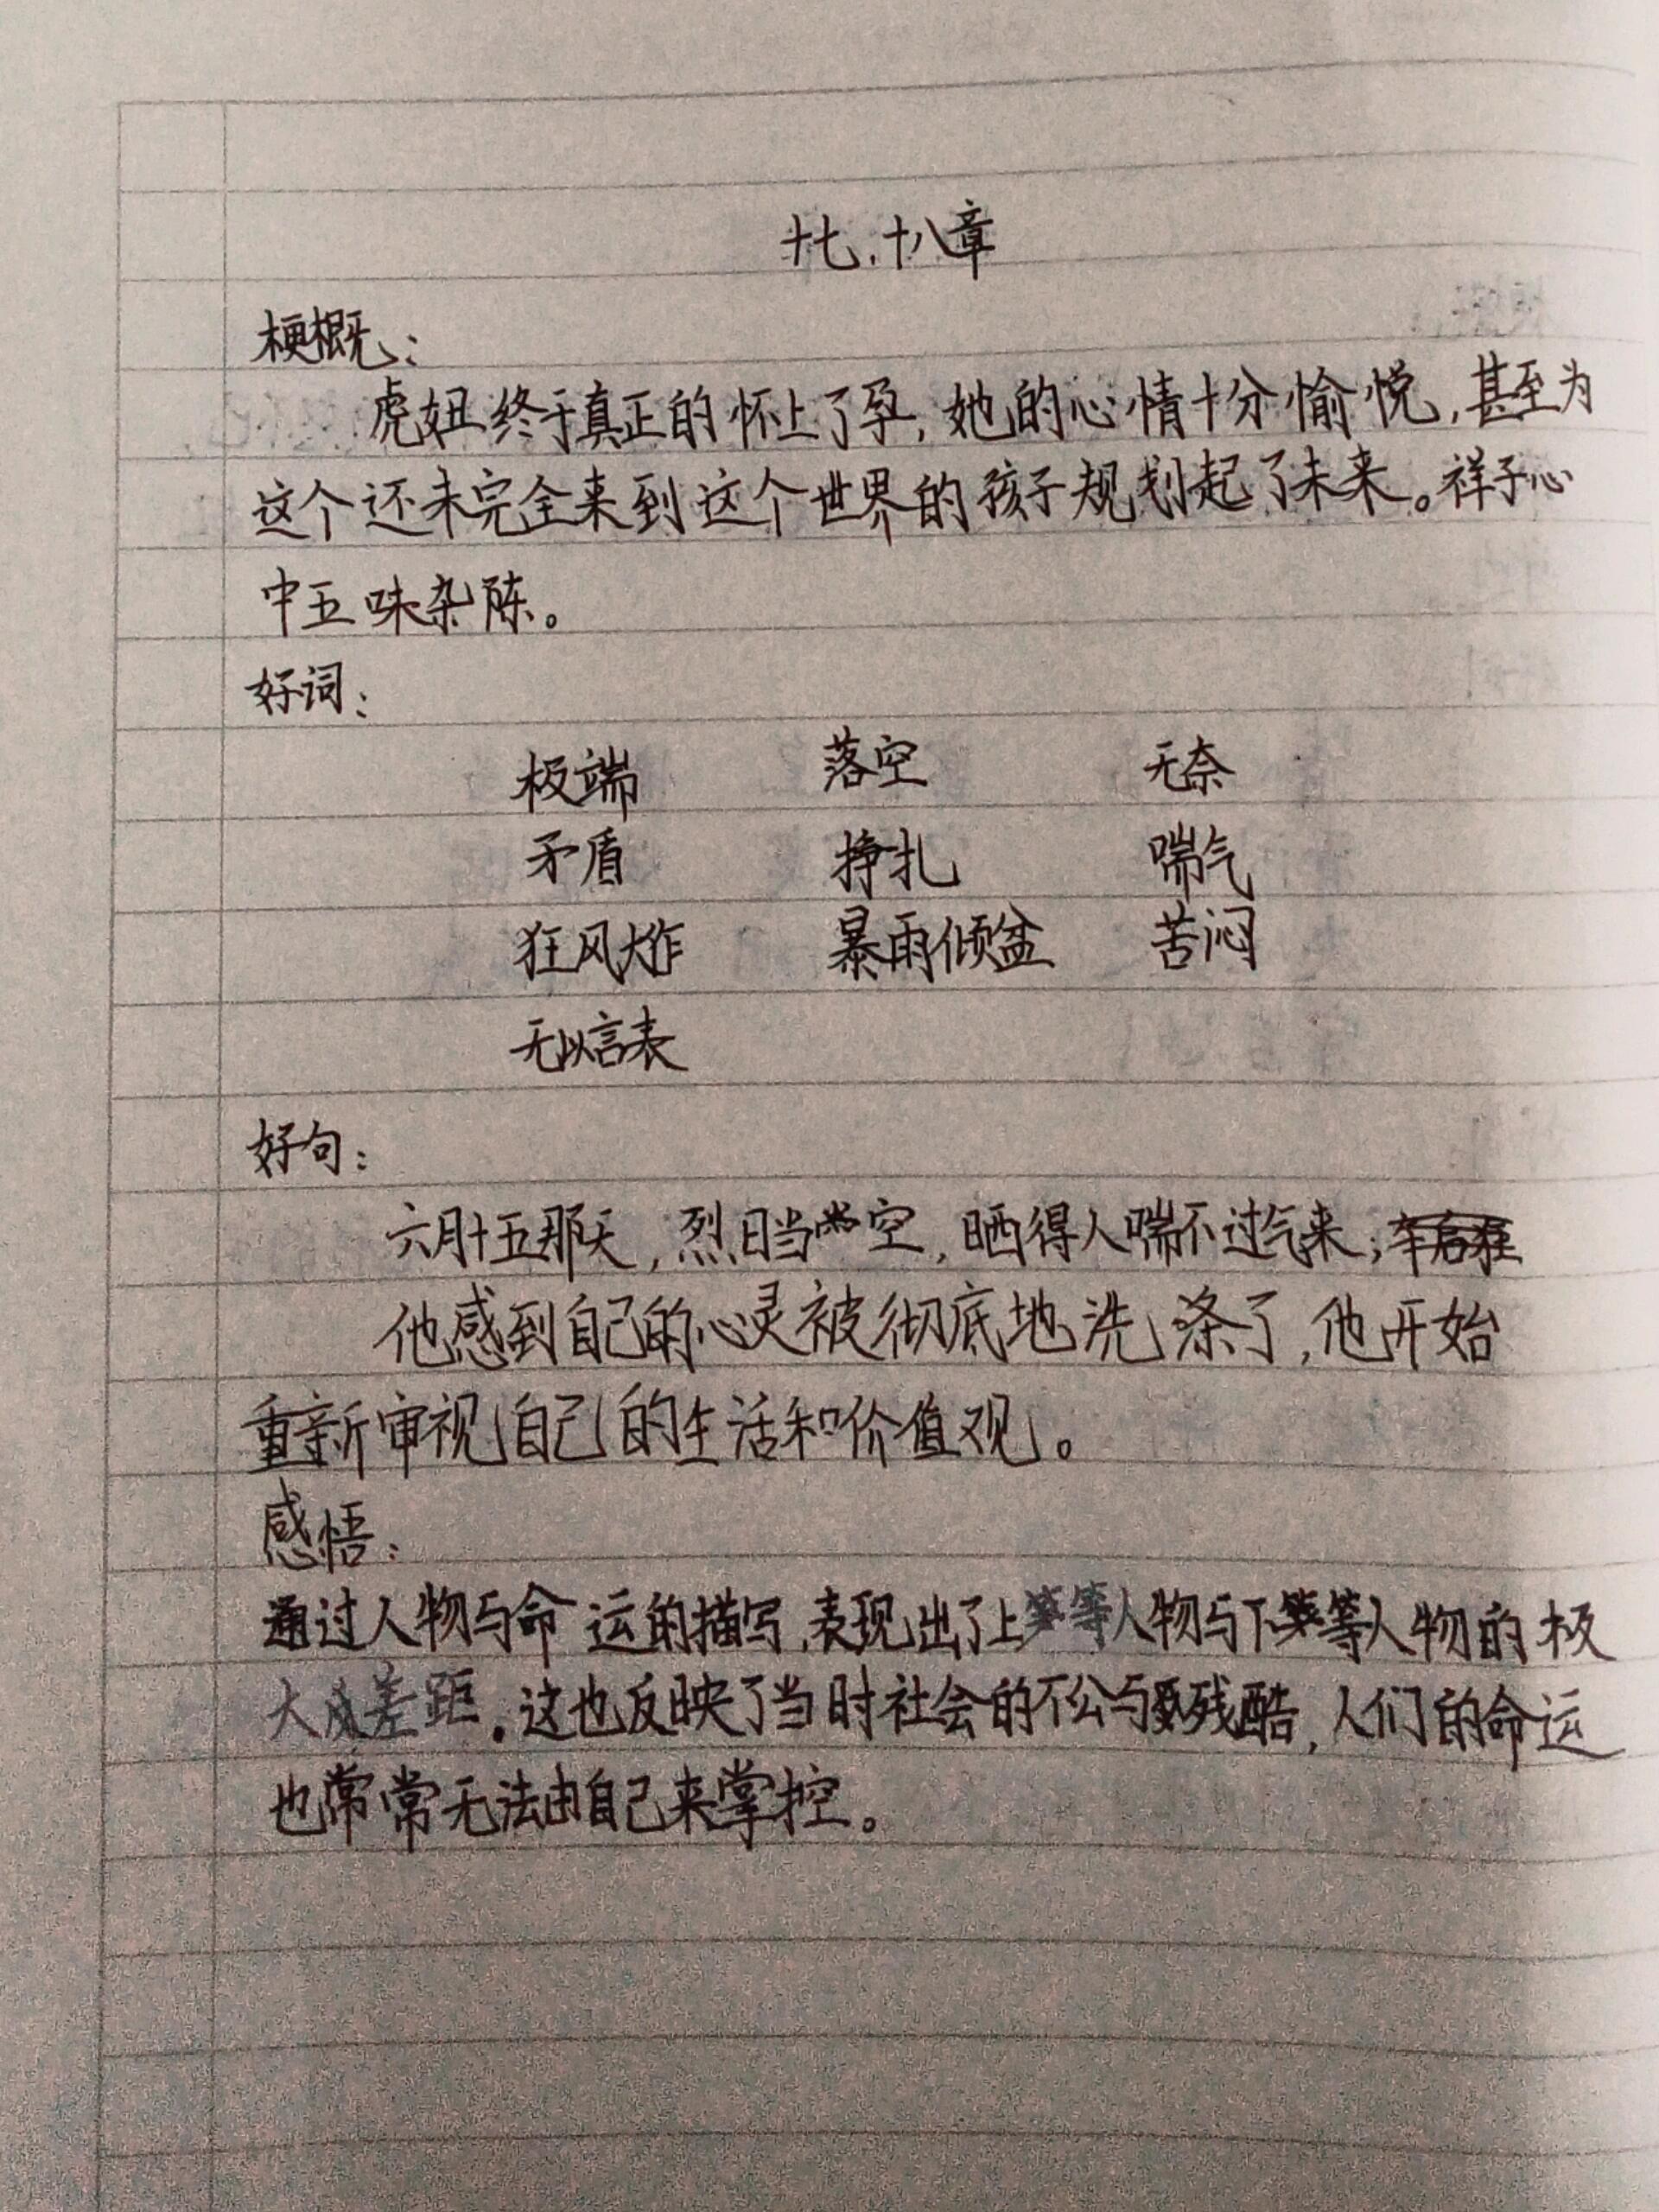 十七、十八章
梗概：
虎妞终于真正的怀上了孕，她的心情十分愉悦，甚至为
这个还未完全来到这个世界的孩子规划起了未来。祥子心
中五味杂陈。
好词：
极端 落空 无奈
矛盾 挣扎 喘气
狂风大作 暴雨倾盆 苦闷
无以言表
好句：
六月十五那天，烈日当空，晒得人喘不过气来；
他感到自己的心灵被彻底地洗涤了，他开始
重新审视自己的生活和价值观。
感悟：
通过人物与命运的描写，表现出了上等人物与下等人物的极
大差距。这也反映了当时社会的不公与残酷，人们的命运
也常常无法由自己来掌控。